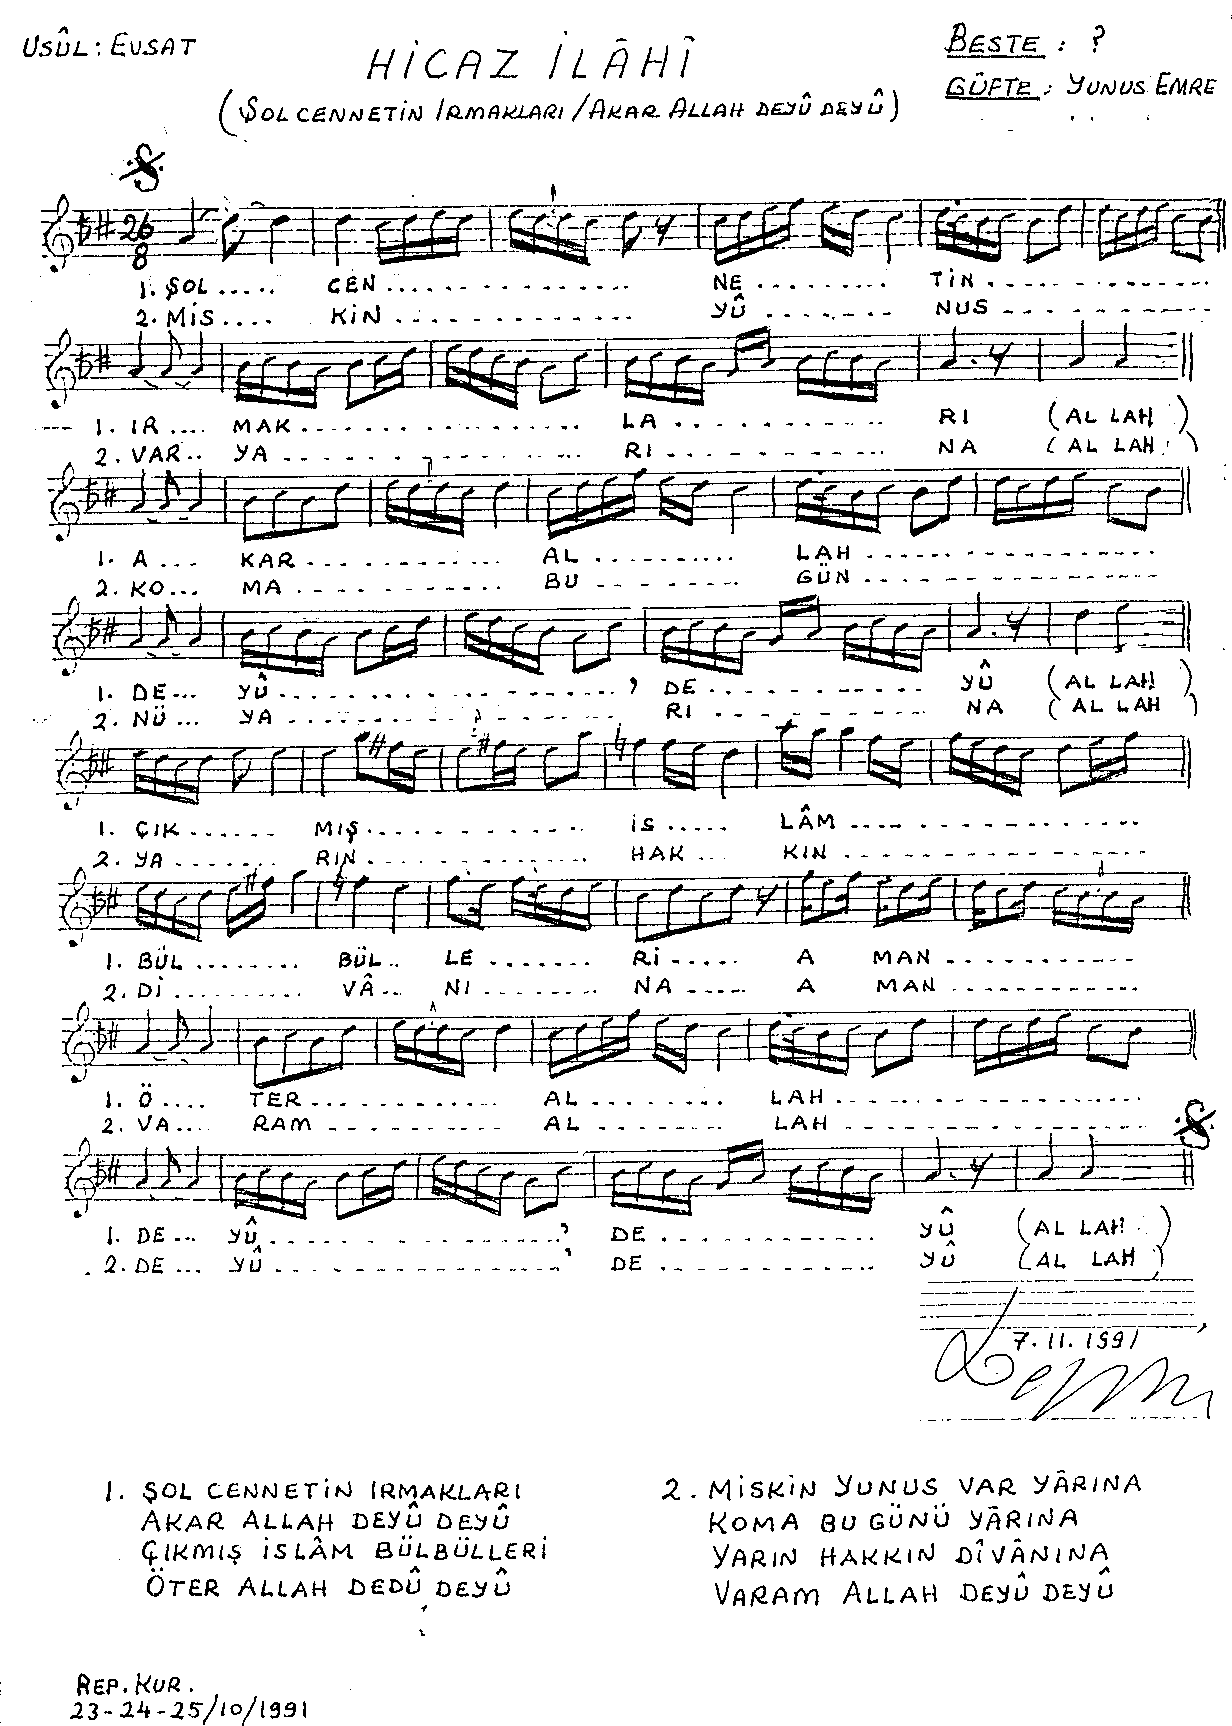 USÛL : EVSAT
HİCAZ İLÂHÎ
BESTE : ?
GÜFTE : YUNUS EMRE
(ŞOL CENNETİN IRMAKLARI / AKAR ALLAH DEYÛ DEYÛ)
26
8
1. ŞOL ..... CEN ................ NE ......... TİN ................
2. MİS .... KİN .............. YÛ ....... NUS ..............
--- 1. IR .... MAK .................. LA .......... RI (AL LAH )
2. VAR.. YA .................. RI ............ NA (AL LAH )
1. A ... KAR ............ AL ......... LAH ..................
2. KO... MA ............ BU ........ GÜN ..................
1. DE... YÛ ....................., DE .............. YÛ (AL LAH )
2. NÜ ... YA ................ RI ............ NA (AL LAH )
1. ÇIK ...... MIŞ .............. İS ..... LÂM ..................
2. YA ....... RIN .............. HAK ... KIN ..................
1. BÜL ........ BÜL.. LE ....... RI ..... A MAN ............
2. Dİ .......... VÂ... NI ....... NA ..... A MAN ............
1. Ö .... TER ............ AL ........ LAH ..................
2. VA.... RAM ............ AL ........ LAH ..................
1. DE ... YÛ ..................., DE ............ YÛ (AL LAH )
2. DE ... YÛ ...................' DE ............ YÛ (AL LAH )
7.11.1991
1. ŞOL CENNETİN IRMAKLARI
AKAR ALLAH DEYÛ DEYÛ
ÇIKMIŞ İSLÂM BÜLBÜLLERİ
ÖTER ALLAH DEDÛ DEYÛ
2. MİSKİN YUNUS VAR YÂRINA
KOMA BU GÜNÜ YÂRINA
YARIN HAKKIN DÎVÂNINA
VARAM ALLAH DEYÛ DEYÛ
REP. KUR.
23-24-25/10/1991